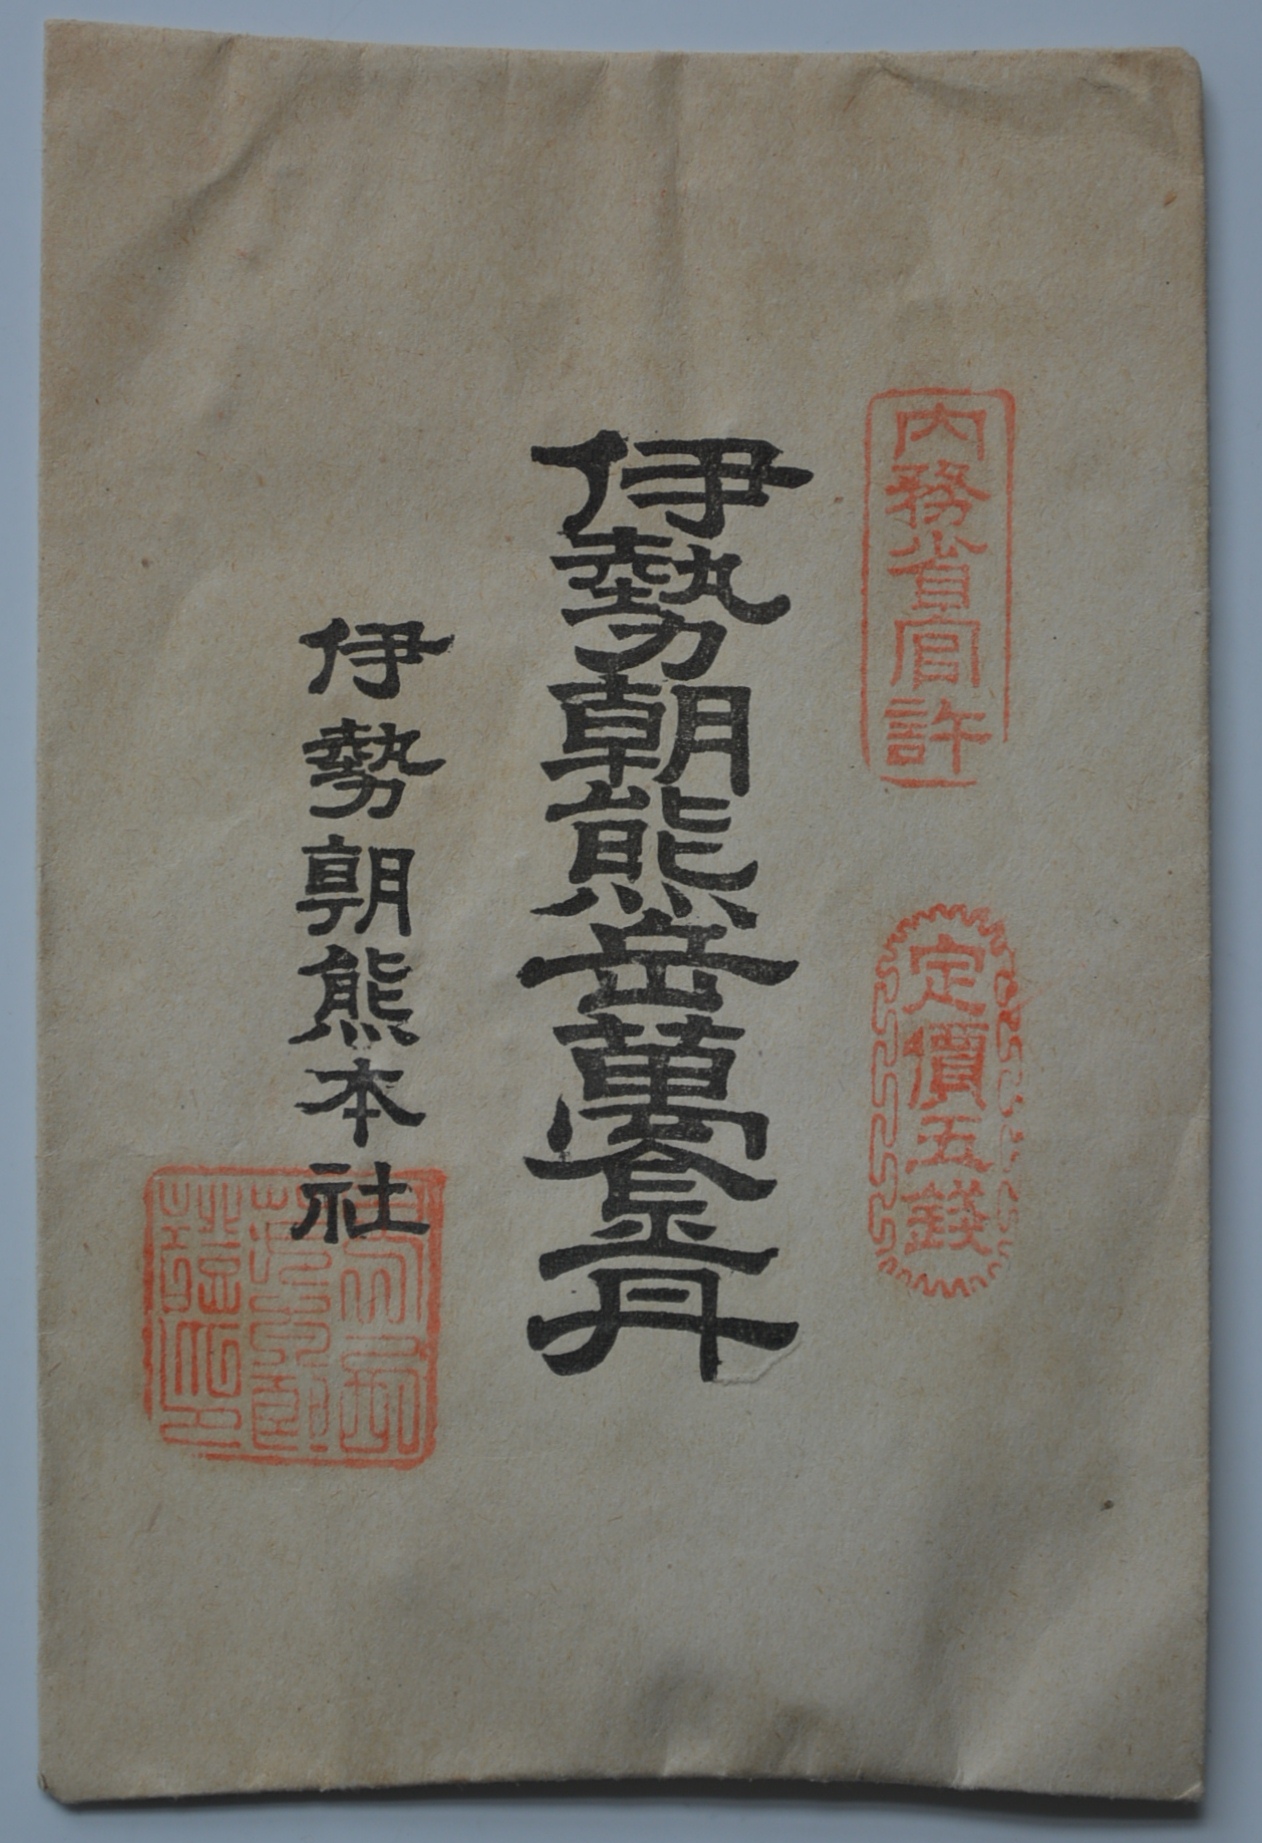 内務省官許
定價五錢
伊勢朝熊岳萬金丹
伊勢朝熊本社